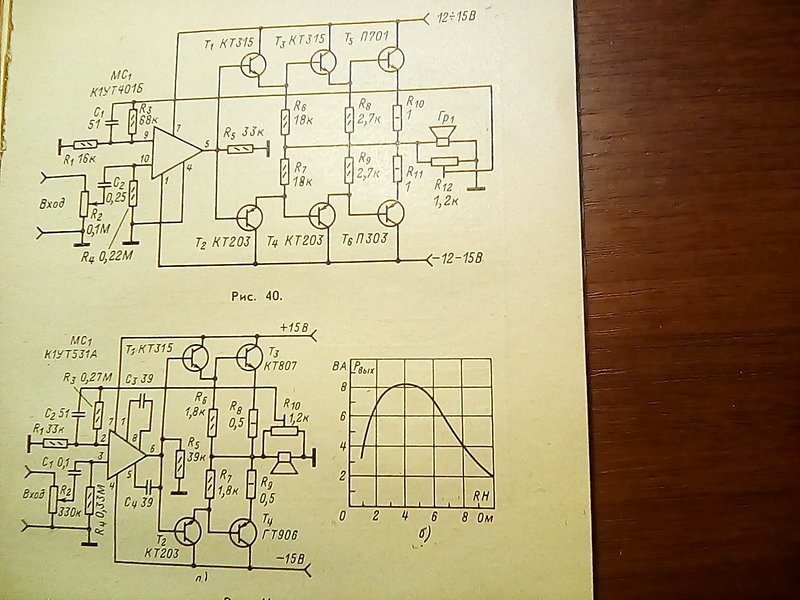 12÷15В
T1 КТ315
T3 КТ315
T5 П701
МС1
К1УТ401Б
C1
51
R3
68к
9
7
5
R5 33к
R6
18к
R8
2,7к
R10
1
Гр1
R1 16к
10
1
4
C2
0,25
R7
18к
R9
2,7к
R11
1
R12
1,2к
Вход
R2
0,1М
R4 0,22М
T2 КТ203
T4 КТ203
T6 П303
−12−15В
Рис. 40.
+15В
МС1
К1УТ531А
T1 КТ315
T3
КТ807
R3 0,27М
C3 39
C2 51
R1 33к
7
1
8
2
3
6
5
4
R6
1,8к
R8
0,5
R10
1,2к
R5
39к
C1 0,1
R7
1,8к
R9
0,5
Вход
R2
330к
R4 0,33М
C4 39
T2
КТ203
T4
ГТ906
−15В
ВА
Рвых
8
6
4
2
RН
0
2
4
6
8
Ом
б)